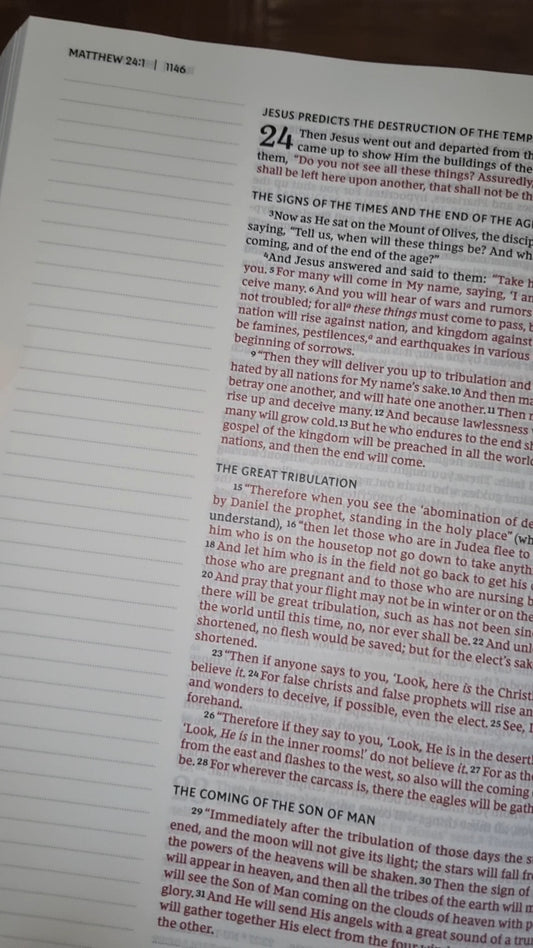 MATTHEW 24:1 | 1146
JESUS PREDICTS THE DESTRUCTION OF THE TEMP
24 Then Jesus went out and departed from th
came up to show Him the buildings of the
them, “Do you not see all these things? Assuredly,
shall be left here upon another, that shall not be th
THE SIGNS OF THE TIMES AND THE END OF THE AG
3Now as He sat on the Mount of Olives, the discip
saying, “Tell us, when will these things be? And wh
coming, and of the end of the age?”
4And Jesus answered and said to them: “Take h
you. 5 For many will come in My name, saying, ‘I a
ceive many. 6 And you will hear of wars and rumors
not troubled; for alla these things must come to pass, b
nation will rise against nation, and kingdom against
be famines, pestilences,a and earthquakes in various
beginning of sorrows.
9 “Then they will deliver you up to tribulation and
hated by all nations for My name’s sake. 10 And then ma
betray one another, and will hate one another. 11 Then
rise up and deceive many. 12 And because lawlessness
many will grow cold. 13 But he who endures to the end s
gospel of the kingdom will be preached in all the worl
nations, and then the end will come.
THE GREAT TRIBULATION
15 “Therefore when you see the ‘abomination of de
by Daniel the prophet, standing in the holy place” (wh
understand), 16 “then let those who are in Judea flee to
him who is on the housetop not go down to take anyth
18 And let him who is in the field not go back to get his
those who are pregnant and to those who are nursing b
20 And pray that your flight may not be in winter or on the
there will be great tribulation, such as has not been sin
the world until this time, no, nor ever shall be. 22 And unl
shortened, no flesh would be saved; but for the elect’s sak
shortened.
23 “Then if anyone says to you, ‘Look, here is the Christ
believe it. 24 For false christs and false prophets will rise an
and wonders to deceive, if possible, even the elect. 25 See, I
forehand.
26 “Therefore if they say to you, ‘Look, He is in the desert
‘Look, He is in the inner rooms!’ do not believe it. 27 For as th
from the east and flashes to the west, so also will the coming
be. 28 For wherever the carcass is, there the eagles will be gath
THE COMING OF THE SON OF MAN
29 “Immediately after the tribulation of those days the s
ened, and the moon will not give its light; the stars will fall fr
the powers of the heavens will be shaken. 30 Then the sign of
will appear in heaven, and then all the tribes of the earth will m
will see the Son of Man coming on the clouds of heaven with p
glory. 31 And He will send His angels with a great sound of a tru
will gather together His elect from the four
the other.